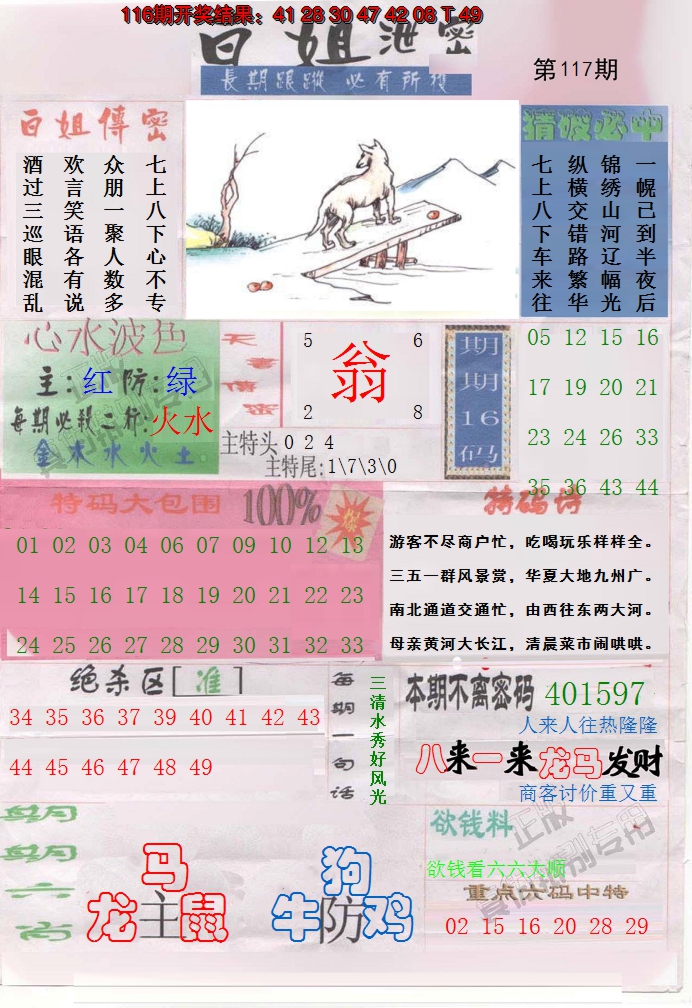 116期开奖结果：41 28 30 47 42 08 T 49
白姐泄密
第117期
長期跟蹤 必有所獲
白姐傳密
七上八下心不专
众朋一聚人数多
欢言笑语各有说
酒过三巡眼混乱
猜波必中
一幌已到半夜后
锦绣山河辽幅光
纵横交错路繁华
七上八下车来往
心水波色
主:红防:绿
每期必殺二行:火水
金木水火土
天書傳密
5 6
翁
2 8
主特头024
主特尾:1\7\3\0
期期16码
05 12 15 16
17 19 20 21
23 24 26 33
35 36 43 44
特码大包围 100%
01 02 03 04 06 07 09 10 12 13
14 15 16 17 18 19 20 21 22 23
24 25 26 27 28 29 30 31 32 33
特码诗
游客不尽商户忙，吃喝玩乐样样全。
三五一群风景赏，华夏大地九州广。
南北通道交通忙，由西往东两大河。
母亲黄河大长江，清晨菜市闹哄哄。
绝杀区[准]
34 35 36 37 39 40 41 42 43
44 45 46 47 48 49
每期一句话
三清水秀好风光
本期不离密码 401597
人来人往热隆隆
八来一来龙马发财
商客讨价重又重
每期六肖
马
龙主鼠
狗
牛防鸡
欲钱料
欲钱看六六大顺
重点六码中特
02 15 16 20 28 29